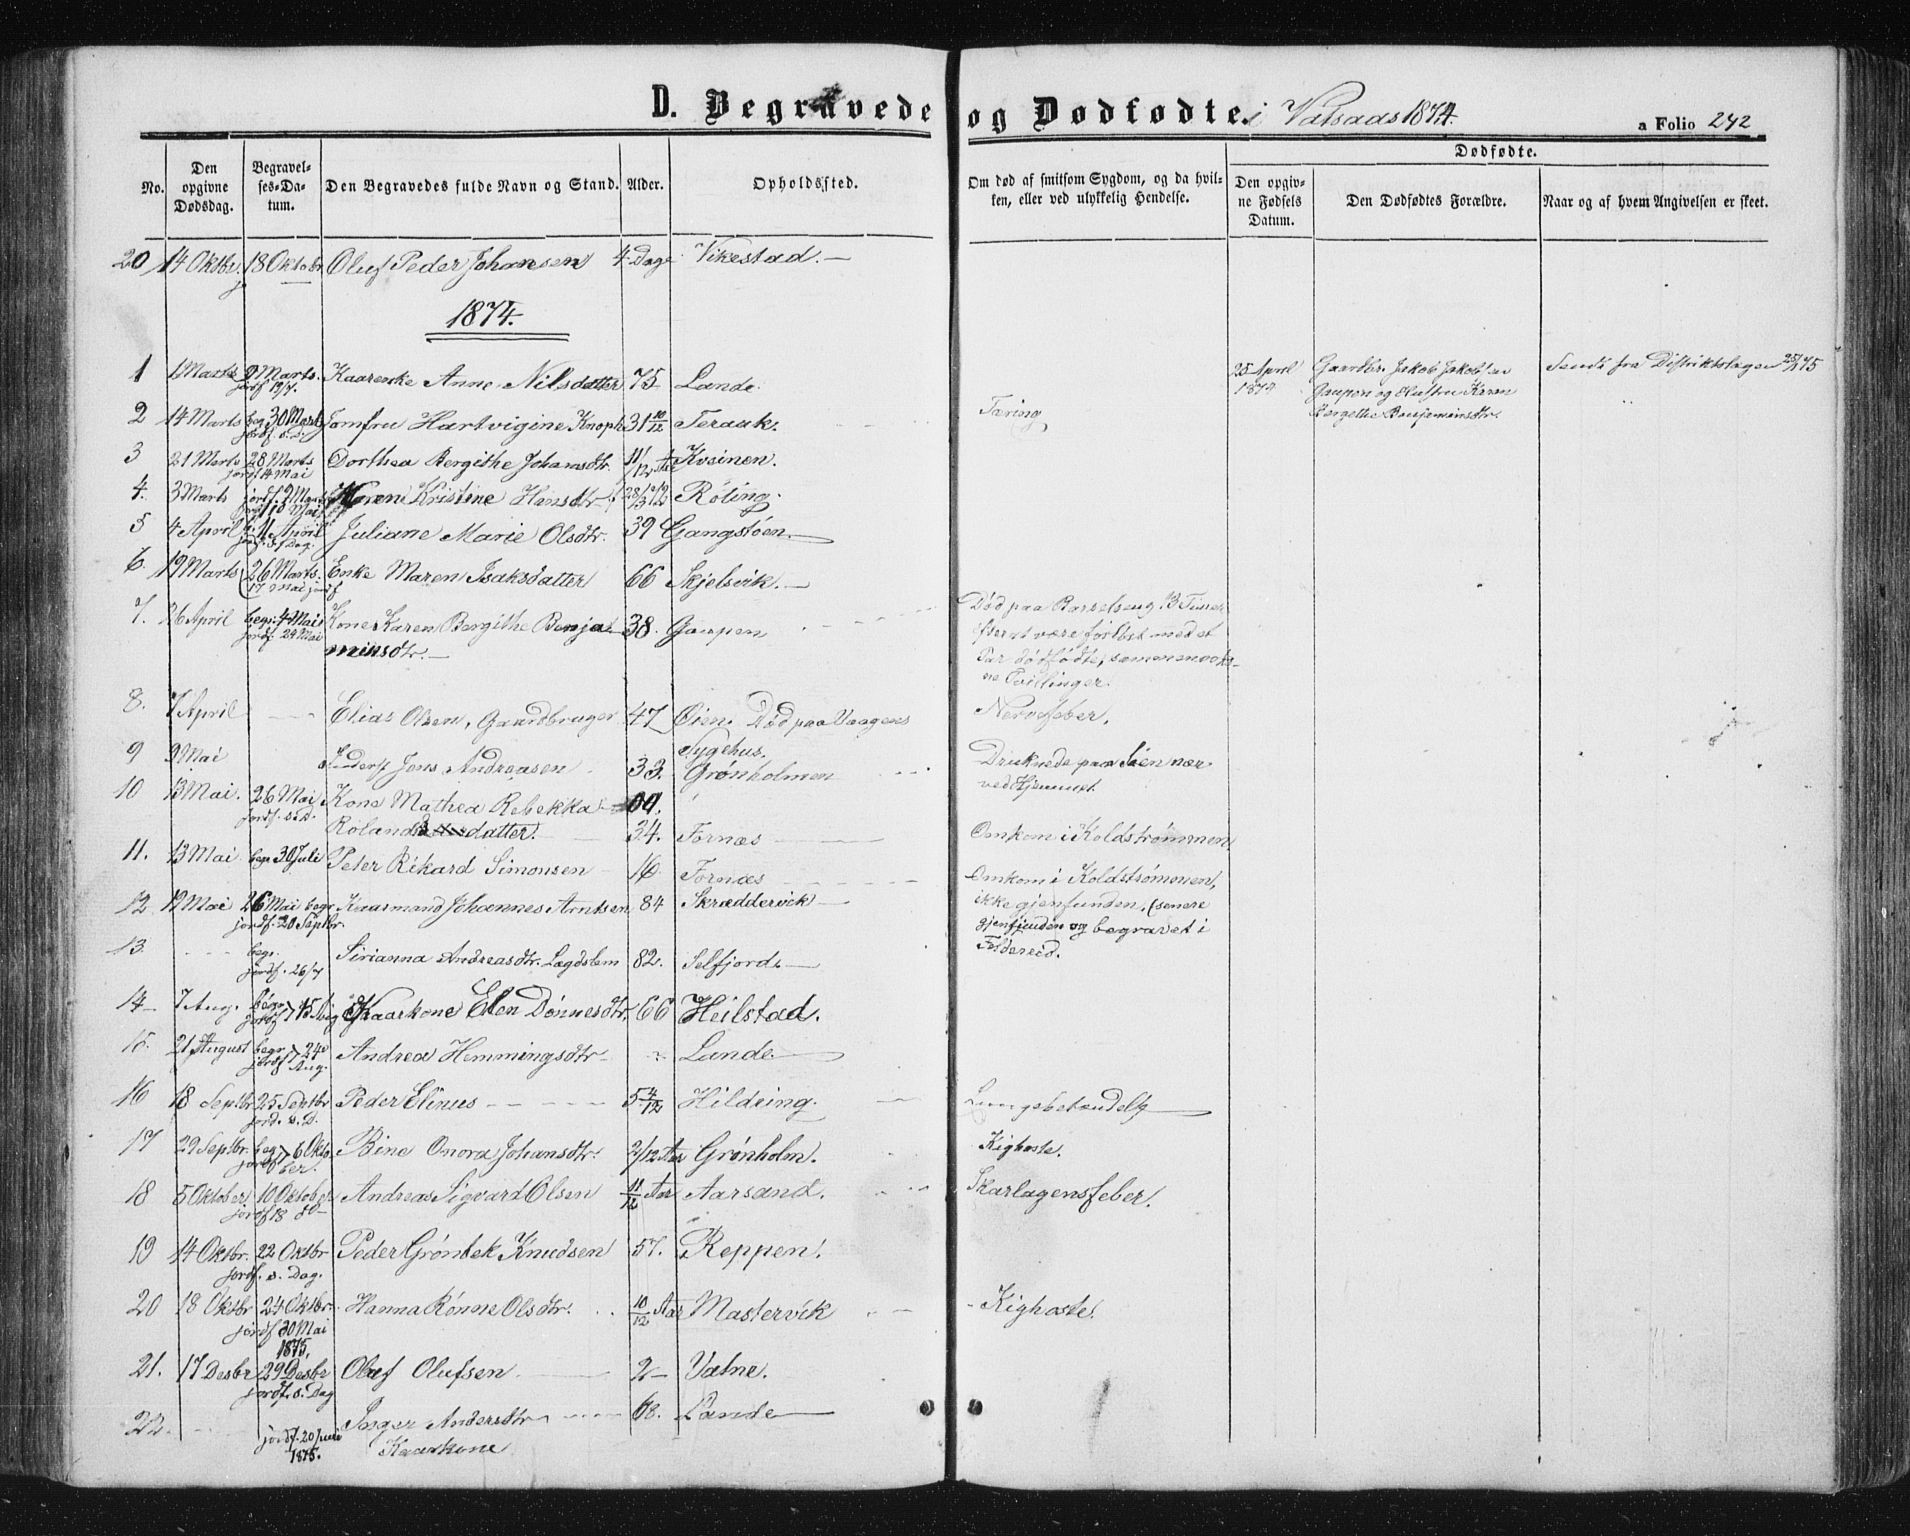 D. Begravede og Dødfødte. i Valsaas 1874. a Folio 242
No.
Den opgivne Dødsdag.
Begravelses-Datum.
Den Begravedes fulde Navn og Stand.
Alder.
Opholdssted.
Om død af smitsom Sygdom, og da hvilken, eller ved ulykkelig Hendelse.
Dødfødte.
Den opgivne Fødsels Datum.
Den Dødfødtes Forældre.
Naar og af hvem Angivelsen er skeet.
20 14 Oktbr. 18 Oktobr Oluf Peder Johansen 4 Dage Vikestad.
1874.
1 1 Marts 9 Marts. Kaarenke Anne Nilsdatter 75 Lande.
jordf 19/7.
25 April 1874 Gaardbr. Jakob Jakobsen
Gaupen og Hustru Karen
Bergithe Benjaminsdtr.
Sendt fra Distriktslægen 25/1 75
2 14 Marts beg. 30 Marts Jomfru Hartvigine Knoph 31 10/12 Teraak. Tæring
jordf. s. D.
3 21 Marts 28 Marts Dorthea Bergithe Johansdtr. 11/12 Aar Kveinen.
jordf. 4 Mai
4. 3 Marts jordf. 9 Marts Maren Kristine Hansdtr Röling.
5 4 April 11 April Juliane Marie Olsdtr. 39 Gangstøen.
jordf. s. Dag.
6. 19 Marts 26 Marts. Enke Maren Isaksdatter 66 Skjelsvik.
17 Mai jordf
7. 26 April begr. 4 Mai Kone Karen Bergithe Benja- 38. Gaupen
jordf. 24 Mai minsdtr.
Død paa Barselseng 13 Timer
efter at være forløst med et
Par dødfødte, sammenvoks-
ne Tvillinger.
8. 7 April Elias Olsen, Gaardbruger 47 Øien. Død paa Vaagens Sygehus. Nervefeber.
9 9 Mai Inderst Jens Andreasen 33. Grønholmen Druknede paa Söen nær
ved Hjemmet
10 13 Mai. 26 Mai Kone Mathea Rebekka
jordf. s. D. Rolands datter. 34. Fornæs Omkom i Koldstrømmen
11. 13 Mai begr 30 Juli Peter Rikard Simonsen 16. Fornæs Omkom i Koldstrømmen,
ikke gjenfunden, (senere
gjenfunden og begravet i
Foldereid.
12 19 Mai 26 Mai begr Kaarmand Johannes Arntsen 84 Skræddervik
jordf. 20 Septbr.
13. begr. Sirianna Andreasdtr. Lægdslem 82. Selfjord
jordf. 26/7
14 7 Aug. begr jordf 15 Aug Kaarkone Elen Dønnesdtr. 66 Heilstad.
15. 21 August begr jordf 24 Aug. Andrea Hemmingsdtr Lande
16 18 Septbr 25 Septbr Peder Elinus 5 4/12 Hildring. Lungebetændelse
jord. s. D.
17 29 Septbr. begr jordf 6 Oktober. Bine Onora Johansdtr. 2/12 Aar Grønholm. Kighoste.
18 5 Oktober 10 Oktober Andreas Sigvard Olsen 11/12 Aar Aarsand. Skarlagensfeber.
jordf 18 do
19 14 Oktbr. 22 Oktbr Peder Gröntek Knudsen 57. Reppen.
jordf. s. Dag.
20 18 Oktbr 24 Oktbr. Hanna Rönne Olsdtr. 10/12 Aar Mastervik Kighoste.
jordf 30 Mai
1875.
21. 17 Desbr 29 Desbr Oluf Olufsen 2 Valne.
jordf. s. Dag
22. Inger Andersdtr 68. Lande
jordf. 20 Juni Kaarkone
1875.